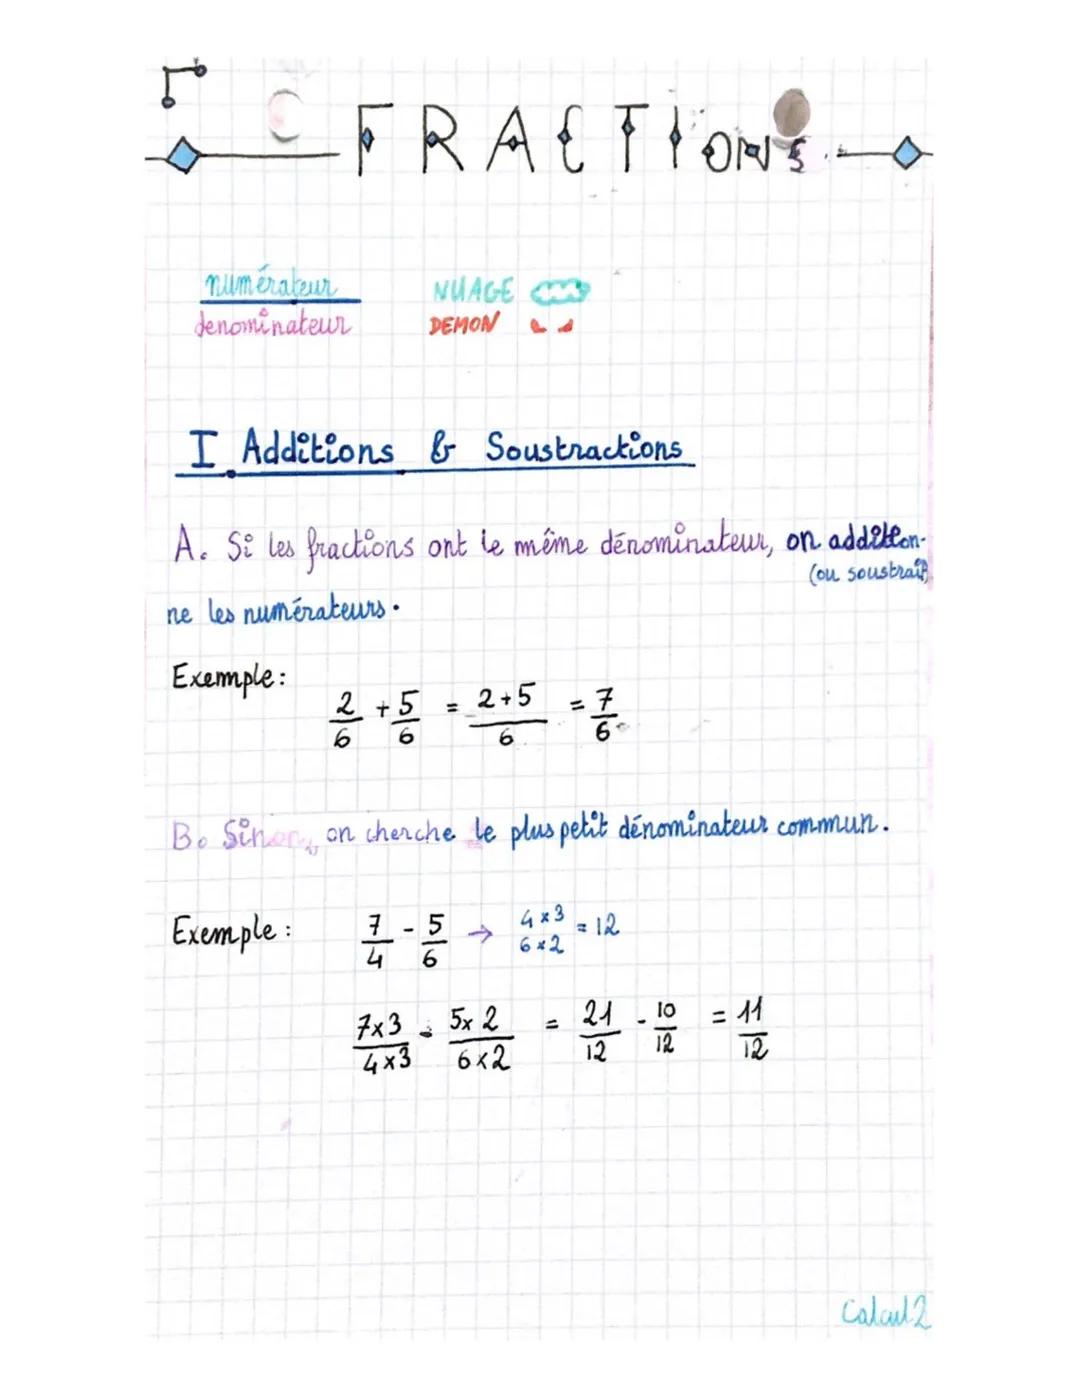 FRACTIONS
numérateur NUAGE
denominateur DEMON
I Additions & Soustractions
A. Si les fractions ont le même dénominateur, on addition-
(ou soustrait)
ne les numérateurs.
Exemple:
2/6 + 5/6 = 2+5/6 = 7/6
B. Sinon, on cherche le plus petit dénominateur commun.
Exemple: 7/4 - 5/6 → 4×3 = 12
6×2
7×3/4×3 - 5×2/6×2 = 21/12 - 10/12 = 11/12
Calcul 2